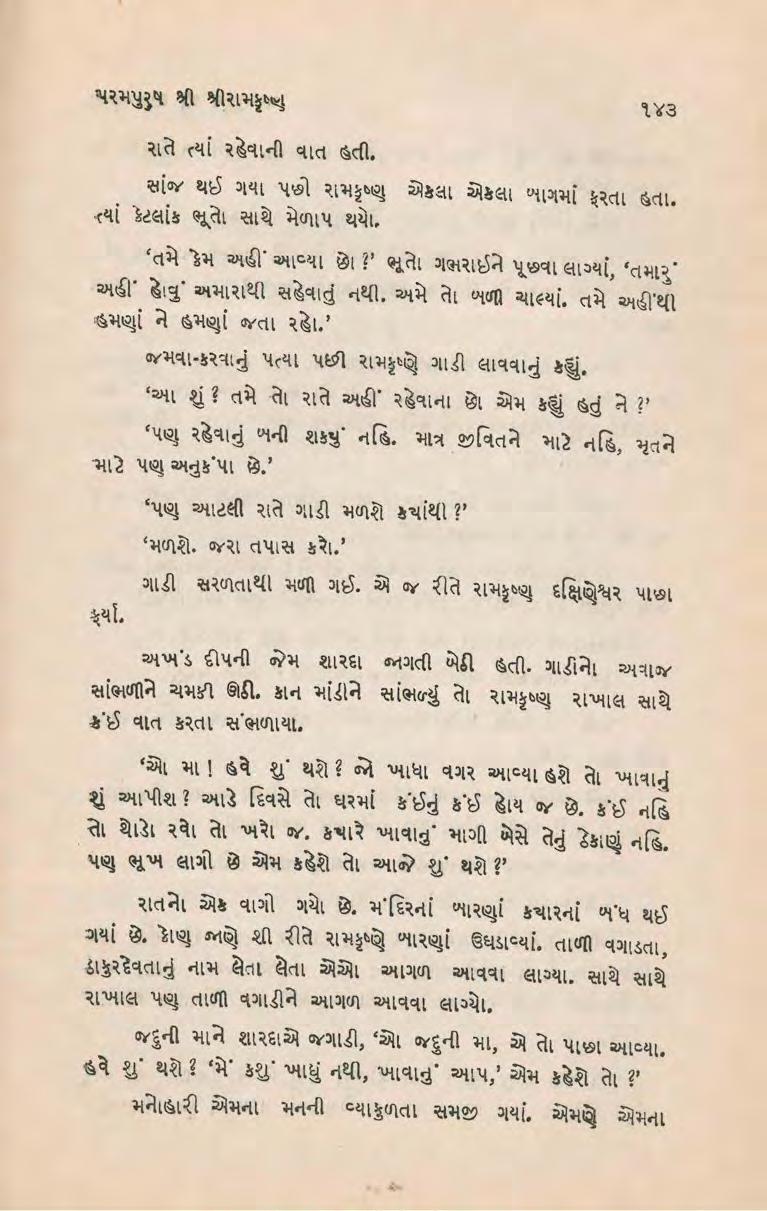 પરમપુરુષ શ્રી શ્રીરામકૃષ્ણ
૧૪૩
રાતે ત્યાં રહેવાની વાત હતી.
સાંજ થઈ ગયા પછી રામકૃષ્ણ એકલા એકલા બાગમાં ફરતા હતા.
ત્યાં કેટલાંક ભૂતો સાથે મેળાપ થયો.
‘તમે કેમ અહીં આવ્યા છો ?’ ભૂતો ગભરાઈને પૂછવા લાગ્યાં, ‘તમારું
અહીં હોવું અમારાથી સહેવાતું નથી. અમે તો બળી ચાલ્યાં. તમે અહીંથી
હમણાં ને હમણાં જતા રહો.’
જમવા-કરવાનું પત્યા પછી રામકૃષ્ણે ગાડી લાવવાનું કહ્યું.
‘આ શું ? તમે તો રાતે અહીં રહેવાના છો એમ કહ્યું હતું ને ?’
‘પણ રહેવાનું બની શક્યું નહિ. માત્ર જીવિતને માટે નહિ, મૃતને
માટે પણ અનુકંપા છે.’
‘પણ આટલી રાતે ગાડી મળશે ક્યાંથી ?’
‘મળશે. જરા તપાસ કરો.’
ગાડી સરળતાથી મળી ગઈ. એ જ રીતે રામકૃષ્ણ દક્ષિણેશ્વર પાછા
ફર્યા.
અખંડ દીપની જેમ શારદા જાગતી બેઠી હતી. ગાડીનો અવાજ
સાંભળીને ચમકી ઊઠી. કાન માંડીને સાંભળ્યું તો રામકૃષ્ણ રાખાલ સાથે
કંઈ વાત કરતા સંભળાયા.
‘ઓ મા ! હવે શું થશે ? જો ખાધા વગર આવ્યા હશે તો ખાવાનું
શું આપીશ ? આડે દિવસે તો ઘરમાં કંઈનું કંઈ હોય જ છે. કંઈ નહિ
તો થોડો રવો તો ખરો જ. ક્યારે ખાવાનું માગી બેસે તેનું ઠેકાણું નહિ.
પણ ભૂખ લાગી છે એમ કહેશે તો આજે શું થશે ?’
રાતનો એક વાગી ગયો છે. મંદિરનાં બારણાં ક્યારનાં બંધ થઈ
ગયાં છે. કોણ જાણે શી રીતે રામકૃષ્ણે બારણાં ઉઘડાવ્યાં. તાળી વગાડતા,
ઠાકુરદેવતાનું નામ લેતા લેતા એઓ આગળ આવવા લાગ્યા. સાથે સાથે
રાખાલ પણ તાળી વગાડીને આગળ આવવા લાગ્યો.
જદુની માને શારદાએ જગાડી, ‘ઓ જદુની મા, એ તો પાછા આવ્યા.
હવે શું થશે ? ‘મેં કશું ખાધું નથી, ખાવાનું આપ,’ એમ કહેશે તો ?’
મનોહારી એમના મનની વ્યાકુળતા સમજી ગયાં. એમણે એમના